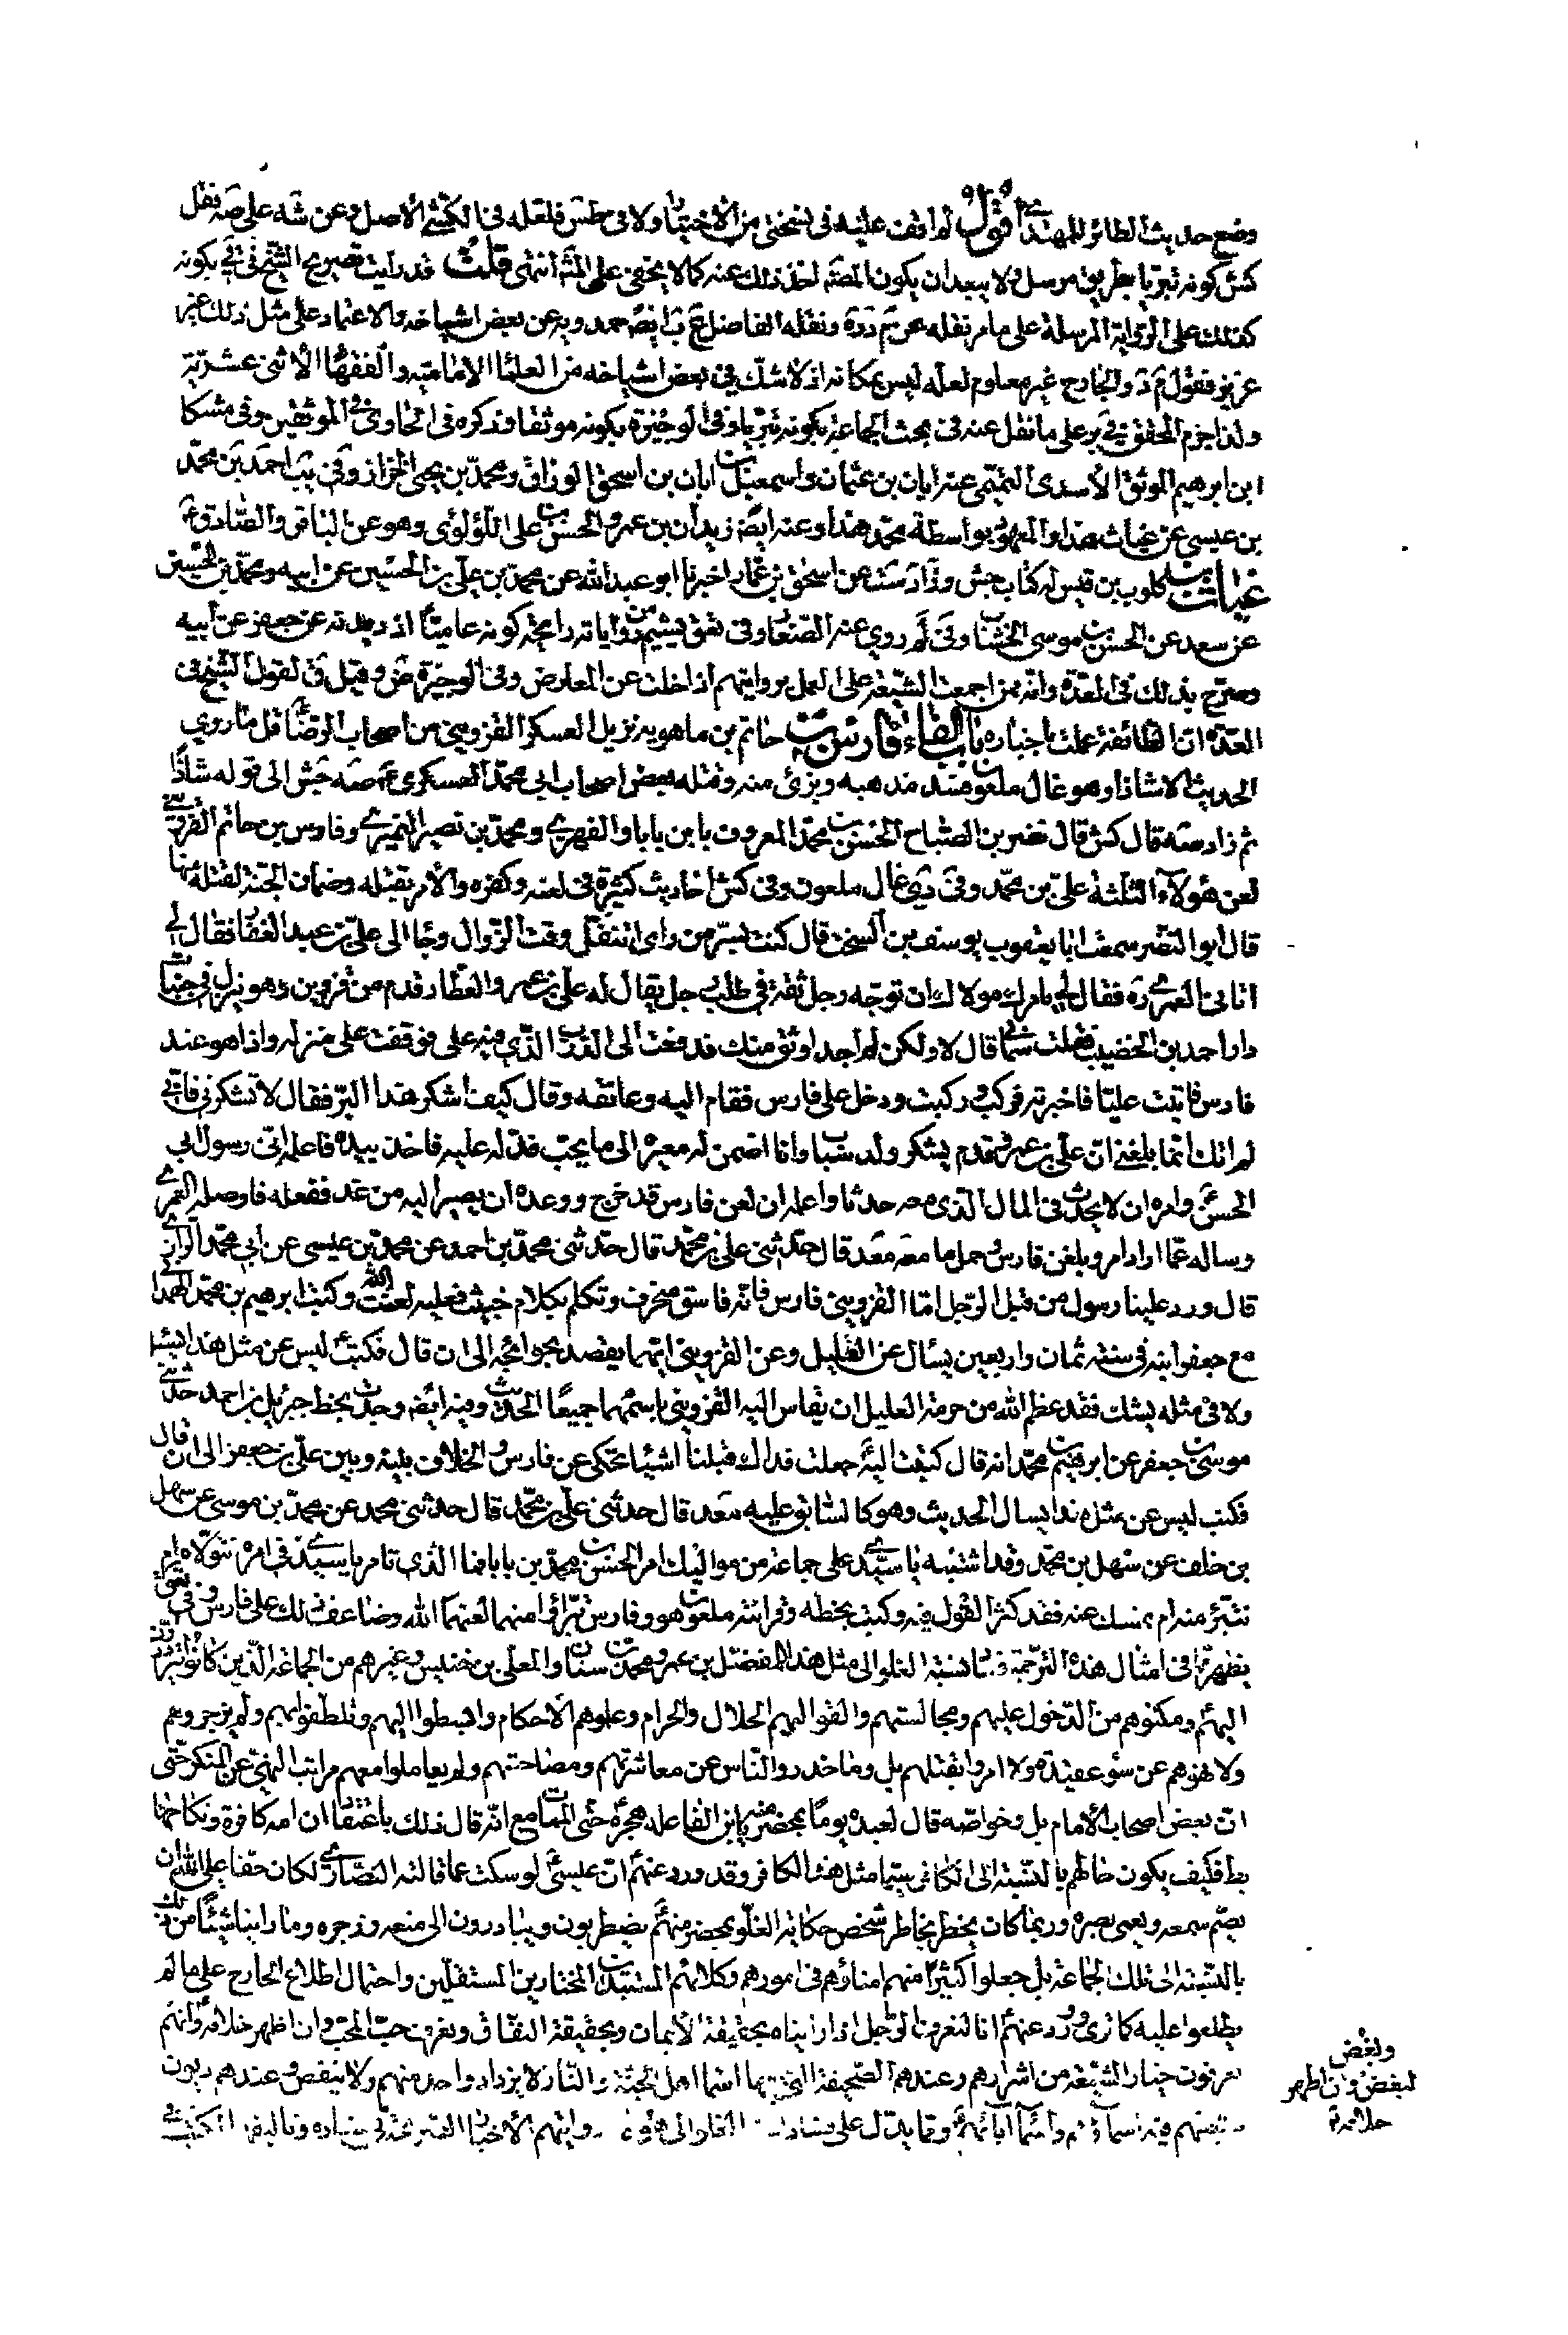 وضع حديث الطائر للمهدي أقول لم اقف عليه في نسختي من الاختيار ولا في طس فلعله في الكشي الاصل وعن شه على صه نقل
كش كونه تبريا بطريق مرسل ولا يبعد ان يكون المصنف اخذ ذلك عنه كما لا يخفى على المتأمل انتهى قلت قد رايت تصريح الشيخ في في بكونه
كذلك على الرواية المرسلة على ما مر نقله عن ونقله الفاضل ايضا حمدويه عن بعض اشياخه والاعتماد على مثل ذلك غير
عزيز فقول والجارح غير معلوم لعله ليس بمكانه اذ لا شك في بعض اشياخه من العلماء الامامية والفقهاء الاثنى عشرية
ولذا جزم المحقق في على ما نقل عنه في بحث الجماعة بكونه تبريا وفي الوجيزة بكونه موثقا وذكره في الحاوي في الموثقين وفي مشكا
ابن ابرهيم الموثق الأسدي التميمي عنه ابان بن عثمان واسمعيل بن ابان بن اسحق الوراق ومحمد بن يحيى الخزاز وفي يب احمد بن محمد
بن عيسى عن غياث هذا والمعهود بواسطة محمد هذا وعنه ايضا زيدان بن عمر والحسن بن علي اللؤلؤي وهو عن الباقر والصادق ع
غياث بن كلوب بن قيس له كتاب جش وزاد ست عن اسحق بن عمار اخبرنا ابو عبد الله عن محمد بن علي بن الحسين عن ابيه ومحمد بن الحسن
عن سعد عن الحسن بن موسى الخشاب وفي لم روي عنه الصفار وفي تعق يشم من رواياته رائحة كونه عاميا اذ ديدنه عن جعفر عن أبيه
وصرح بذلك في العدة وانه ممن اجمعت الشيعة على العمل بروايتهم اذا خلت عن المعارض وفي الوجيزة ض وقيل ق لقول الشيخ في
العدة ان الطائفة عملت باخباره باب الفاء فارس بن حاتم بن ماهويه نزيل العسكر القزويني من اصحاب الرضا ع قل ما روي
الحديث الا شاذا وهو غال ملعون فسد مذهبه وبرئ منه وقتله بعض اصحاب ابي محمد العسكري ع صه جش الى قوله شاذا
ثم زاد صه قال كش قال نصر بن الصباح الحسن بن محمد المعروف بابن بابا والفهري ومحمد بن نصير النميري وفارس بن حاتم القزويني
لعن هولاء الثلثة علي بن محمد وفي دي غال ملعون وفي كش احاديث كثيرة في لعنه وكفره والأمر بقتله وضمان الجنة لقتله منها
قال أبو النضر سمعت ابا يعقوب يوسف بن السخت قال كنت بسر من راى اتنفل وقت الزوال وجاء الى علي بن عبد الغفار فقال لي
اتاني العمري ره فقال لي يامرك مولاك ان توجه رجل ثقة في طلب رجل يقال له علي بن عمرو العطار قدم من قزوين وهو نزل في جنبات
دار احمد بن الخضيب فقلت سماني قال لا ولكن لم اجد اوثق منك فدفعت الى الدرب الذي فيه علي فوقفت على منزله واذا هو عند
فارس فاتيت عليا فاخبرته فركب وركبت ودخل على فارس فقام اليه وعانقه وقال كيف اشكر هذا البر فقال لا تشكرني فاني
لم اتك انما بلغني ان علي بن عمرو قدم يشكو ولد سنان وانا اضمن له مصيره الى ما يحب فدله عليه فاخذ بيده فاعلمه اني رسول ابي
الحسن ع وامره ان لا يحدث في المال الذي معه حدثا واعلمه ان لعن فارس قد خرج ووعده ان يصير اليه من غد ففعله فاوصله العمري
وساله عما اراد امر وبلعن فارس وحمل ما معه سعد قال حدثني علي بن محمد قال حدثني محمد بن احمد عن محمد بن عيسى عن أبي محمد الرازي
قال ورد علينا رسول من قبل الرجل اما القزويني فارس فانه فاسق منحرف وتكلم بكلام خبيث فعليه لعنة الله وكتب ابرهيم بن محمد الهمداني
مع جعفر ابنه في سنة ثمان واربعين يسأل عن العليل وعن القزويني ايهما يقصد بحوائجه الى ان قال فكتب ع ليس عن مثل هذا يسئل
ولا في مثله يشك فقد عظم الله من حرمة العليل ان يقاس اليه القزويني باسمهما جميعا الحديث وفيه ايضا وجدت بخط جبرئيل بن احمد حدثني
موسى بن جعفر عن ابرهيم بن محمد انه قال كتبت اليه ع جعلت فداك قبلنا اشياء تحكى عن فارس والخلاف بينه وبين علي بن جعفر الى ان قال
فكتب ليس عن مثل هذا يسال الحديث وهو كالسابق عليه سعد قال حدثني علي بن محمد قال حدثني محمد عن محمد بن موسى عن سهل
بن خلف عن سهل بن محمد وقد اشتبه يا سيدي على جماعة من مواليك امر الحسن بن محمد بن بابا فما الذي تامر يا سيدي في امره نتولاه ام
نتبرء منه ام نمسك عنه فقد كثر القول فيه وكتب بخطه وقراته ملعون هو وفارس تبرأوا منهما لعنهما الله وضاعف ذلك على فارس وفي تعق
يظهر في امثال هذه الترجمة نسبة الغلو الى مثل هذا المفضل بن عمر ومحمد بن سنان والمعلى بن خنيس وغيرهم من الجماعة الذين كانوا يترددون
اليهم ع ومكنوهم من الدخول عليهم ومجالستهم والقوا اليهم الحلال والحرام وعلموهم الأحكام وانبسطوا اليهم وتلطفوا بهم ولم يزجروهم
ولا نهوهم عن سؤ عقيدة ولا امروا بقتلهم بل وما حذروا الناس عن معاشرتهم ومصاحبتهم ولم يعاملوا معهم مراتب النهي عن المنكر حتى
ان بعض اصحاب الأمام بل وخواصه قال لعبده يوما بمحضر منه يا بن الفاعلة هجره حتى الممات مع انه قال ذلك باعتقاد ان امه كافرة ونكاحها
بط فكيف يكون حالهم بالنسبة الى الكافر سيما مثل هذا الكافر وقد ورد عنهم ع ان عيسى ع لو سكت عما قالته النصارى لكان حقا على الله ان
يصم سمعه ويعمى بصره وربما كان يخطر بخاطر شخص حكاية الغلو بمحضر منهم ع يضطربون ويبادرون الى منعه وزجره وما راينا شيئا من ذلك
بالنسبة الى تلك الجماعة بل جعلوا كثيرا منهم امناءهم في امورهم وكلائهم المستبدين المختارين المستقلين واحتمال اطلاع الجارح على ما لم
يطلعوا عليه كما ترى وورد عنهم ع انا لنعرف الرجل اذا رايناه بحقيقة الأيمان وبحقيقة النفاق ونعرف حب المحب وان اظهر خلافه وانهم
يعرفون خيار الشيعة من اشرارهم وعندهم الصحيفة التي فيها اسماء اهل الجنة والنار لا يزداد واحد منهم ولا ينقص وعندهم ديوان
فيه اسماؤهم واسماء آبائهم ومما يدل على الاخبار
وبغض
المبغض وان اظهر
خلافه